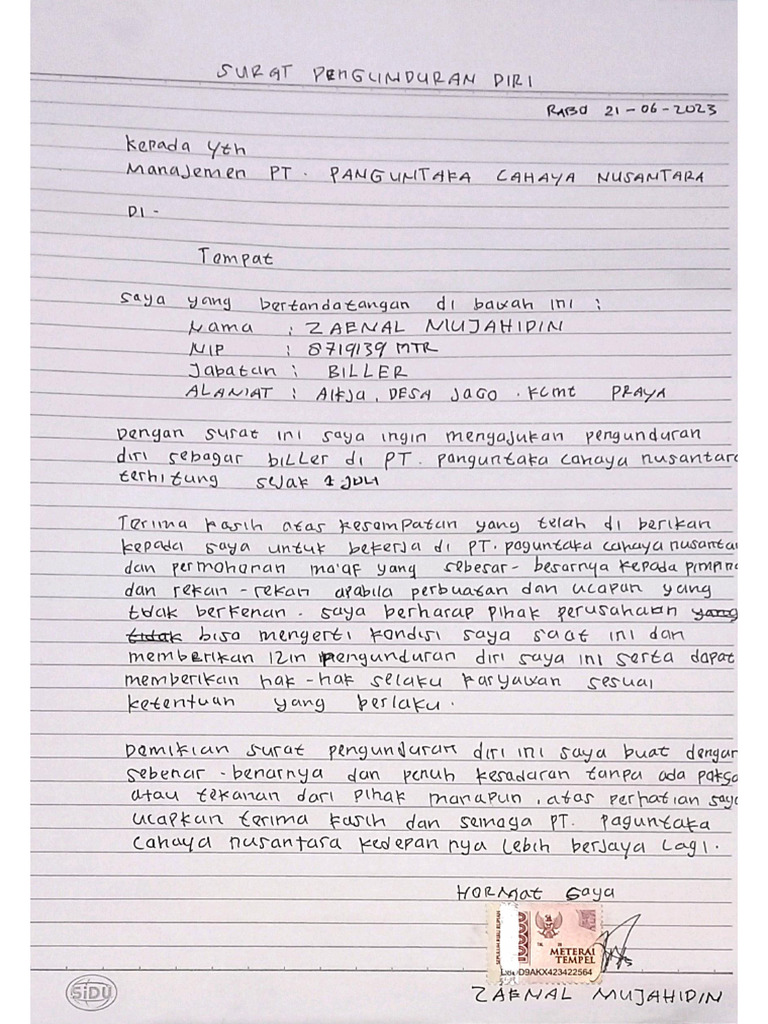 SURAT PENGUNDURAN DIRI
RABO 21-06-2023
Kepada Yth
Manajemen PT. PANGUNTAKA CAHAYA NUSANTARA
DI -
Tempat
Saya yang bertandatangan di bawah ini :
Nama : ZAENAL MUJAHIDIN
NIP : 8719139 MTR
Jabatan : BILLER
ALAMAT : Aikja, DESA JAGO. KCMT PRAYA
Dengan surat ini saya ingin mengajukan pengunduran
diri sebagai biller di PT. panguntaka cahaya nusantara
terhitung sejak 1 JULI
Terima kasih atas kesempatan yang telah di berikan
kepada saya untuk bekerja di PT. paguntaka cahaya nusanta
dan permohonan ma'af yang sebesar-besarnya kepada pimpin
dan rekan-rekan apabila perbuatan dan ucapan yang
tidak berkenan. saya berharap pihak perusahaan yang
tidak bisa mengerti kondisi saya saat ini dan
memberikan izin pengunduran diri saya ini serta dapat
memberikan hak-hak selaku karyawan sesuai
ketentuan yang berlaku.
Demikian surat pengunduran diri ini saya buat dengan
sebenar-benarnya dan penuh kesadaran tanpa ada paksa
atau tekanan dari pihak manapun, atas perhatian saya
ucapkan terima kasih dan semoga PT. paguntaka
cahaya nusantara kedepannya lebih berjaya lagi.
HORMAT Saya
10000
METERAI
TEMPEL
D9AKX423422564
ZAENAL MUJAHIDIN
SiDU